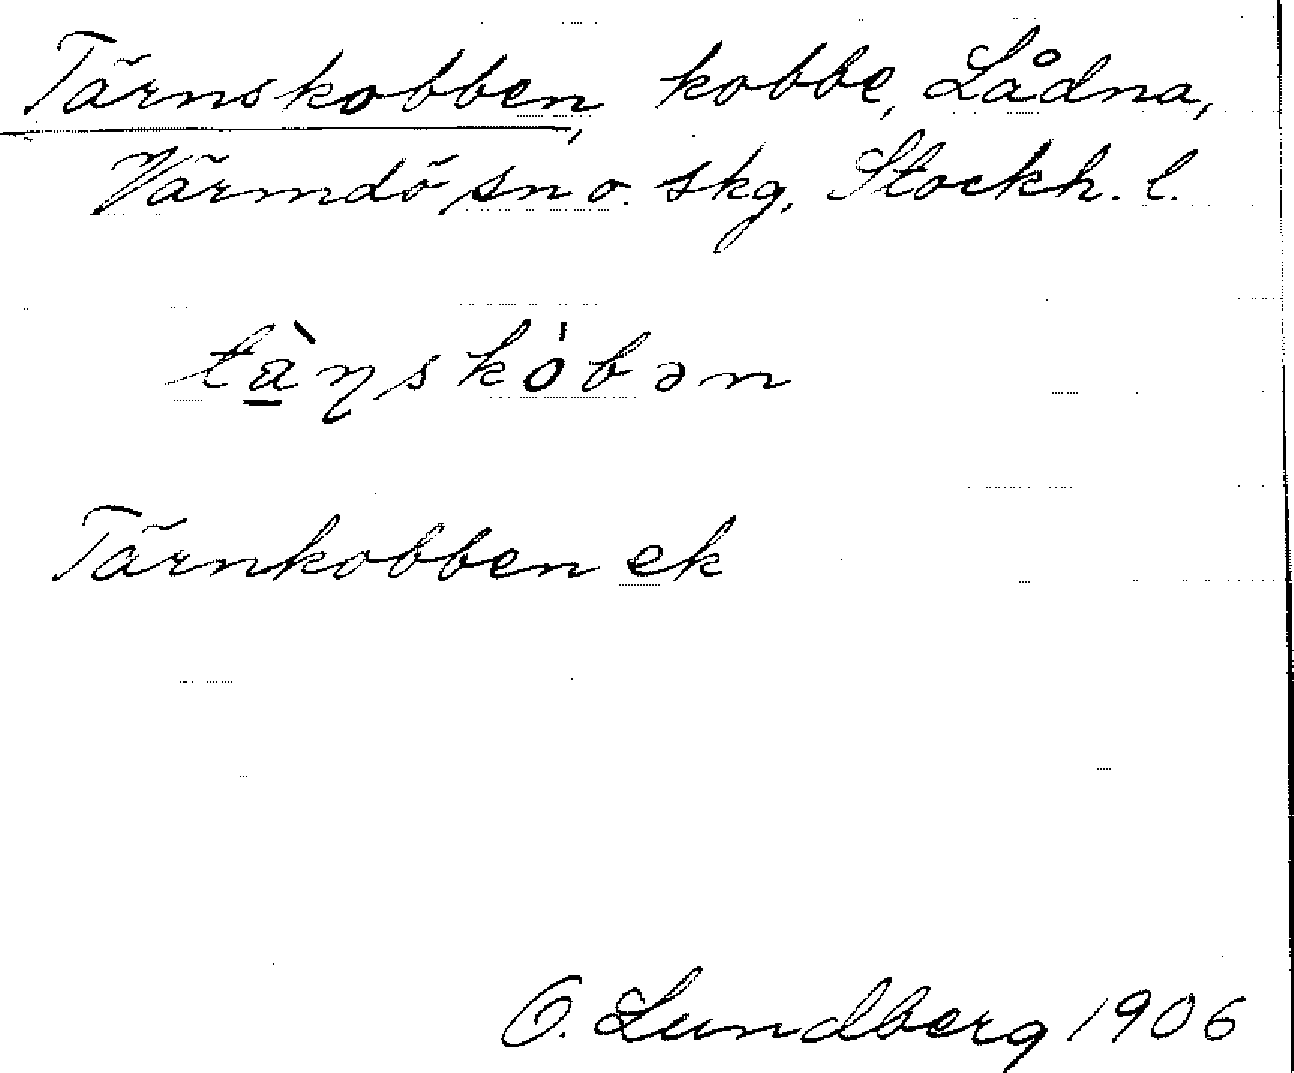 Tärnskobben, kobbe, Lådna,
Värmdö sn o. skg, Stockh. l.
tàṇskóbən
Tärnkobben ek
O. Lundberg 1906